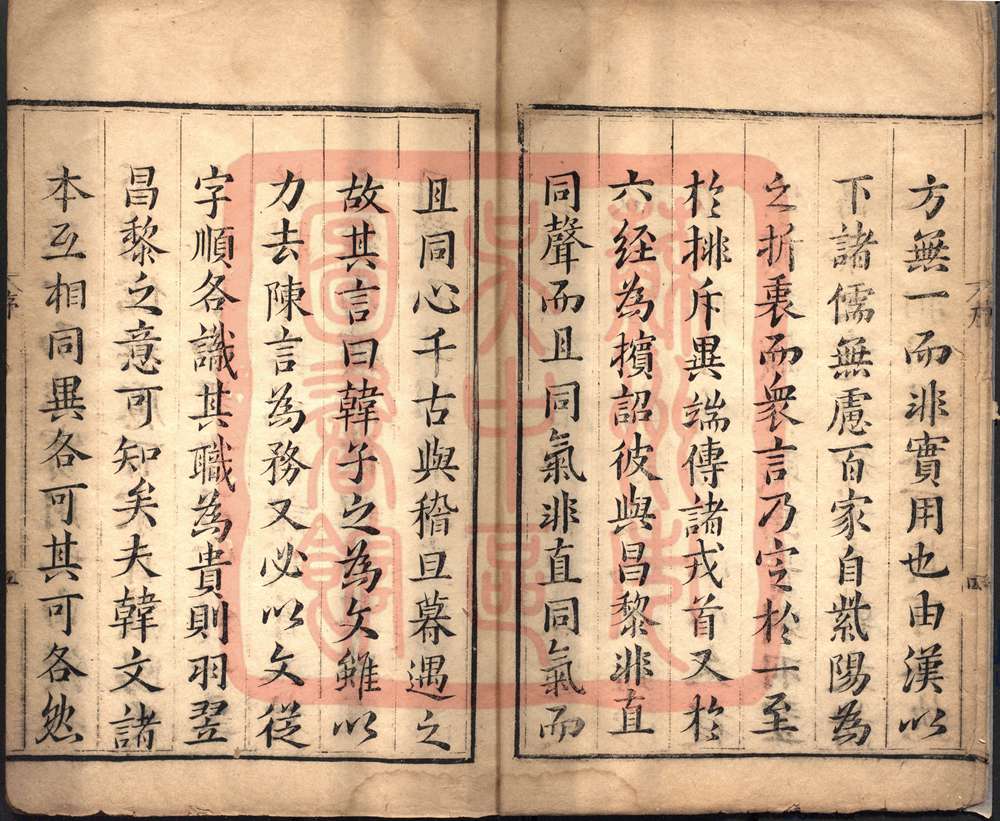 方無一而非實用也由漢以
下諸儒無慮百家自紫陽為
之折衷而衆言乃定於一至
於排斥異端傳諸戎首又於
六经為擯詔彼與昌黎非直
同聲而且同氣非直同氣而
且同心千古與稽旦暮遇之
故其言曰韓子之為文雖以
力去陳言為務又必以文從
字順各識其職為貴則羽翌
昌黎之意可知矣夫韓文諸
本互相同異各可其可各然
蘇州市吳中區圖書館